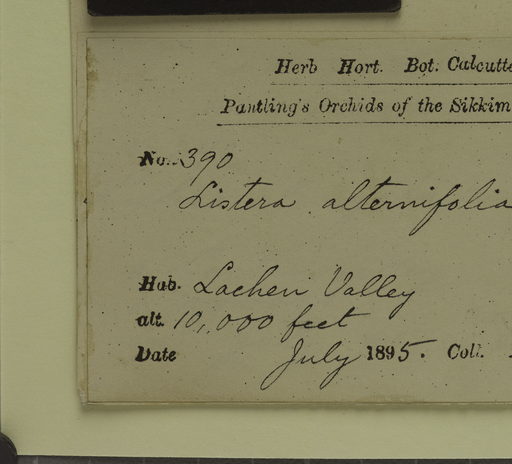 Herb Hort. Bot. Calcutte
Pantling's Orchids of the Sikkim
No. 390
Listera alternifolia
Hab. Lachen Valley
alt. 10,000 feet
Date July 1895. Coll.